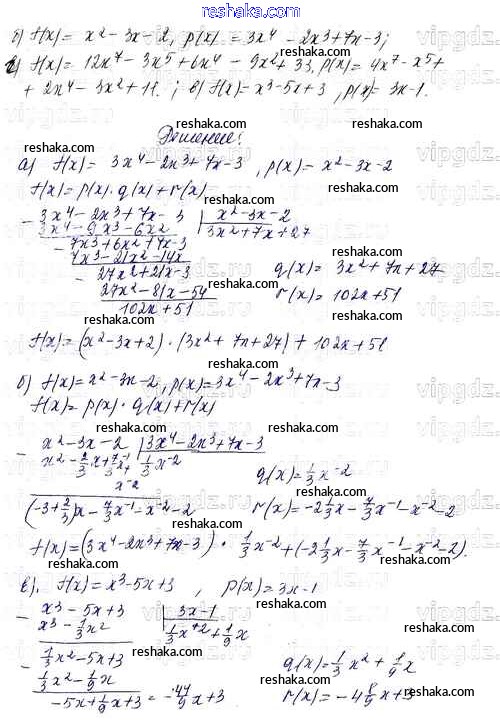 reshaka.com
б) f(x) = x² - 3x - 2, p(x) = 3x⁴ - 2x³ + 7x - 3;
г) f(x) = 12x⁷ - 3x⁵ + 6x⁴ - 9x² + 33, p(x) = 4x⁷ - x⁵ +
+ 2x⁴ - 3x² + 11. ; в) f(x) = x³ - 5x + 3, p(x) = 3x - 1.
Решение:
а) f(x) = 3x⁴ - 2x³ + 7x - 3, p(x) = x² - 3x - 2
f(x) = p(x) · q(x) + r(x)
- 3x⁴ - 2x³ + 7x - 3 | x² - 3x - 2
3x⁴ - 9x³ - 6x² | 3x² + 7x + 27
- 7x³ + 6x² + 7x - 3
7x³ - 21x² - 14x
- 27x² + 21x - 3 q(x) = 3x² + 7x + 27
27x² - 81x - 54 r(x) = 102x + 51
102x + 51
f(x) = (x² - 3x + 2) · (3x² + 7x + 27) + 102x + 51
б) f(x) = x² - 3x - 2, p(x) = 3x⁴ - 2x³ + 7x - 3
f(x) = p(x) · q(x) + r(x)
- x² - 3x - 2 | 3x⁴ - 2x³ + 7x - 3
x² - 2/3 x + 7/3 x⁻¹ - | 1/3 x⁻²
x⁻² q(x) = 1/3 x⁻²
(-3 + 2/3)x - 7/3 x⁻¹ - x⁻² - 2 r(x) = -2 1/3 x - 7/3 x⁻¹ - x⁻² - 2
f(x) = (3x⁴ - 2x³ + 7x - 3) · 1/3 x⁻² + (-2 1/3 x - 7/3 x⁻¹ - x⁻² - 2).
в). f(x) = x³ - 5x + 3, p(x) = 3x - 1
- x³ - 5x + 3 | 3x - 1
x³ - 1/3 x² | 1/3 x² + 1/9 x
- 1/3 x² - 5x + 3
1/3 x² - 1/9 x q(x) = 1/3 x² + 1/9 x
-5x + 1/9 x + 3 = -44/9 x + 3 r(x) = -4 8/9 x + 3